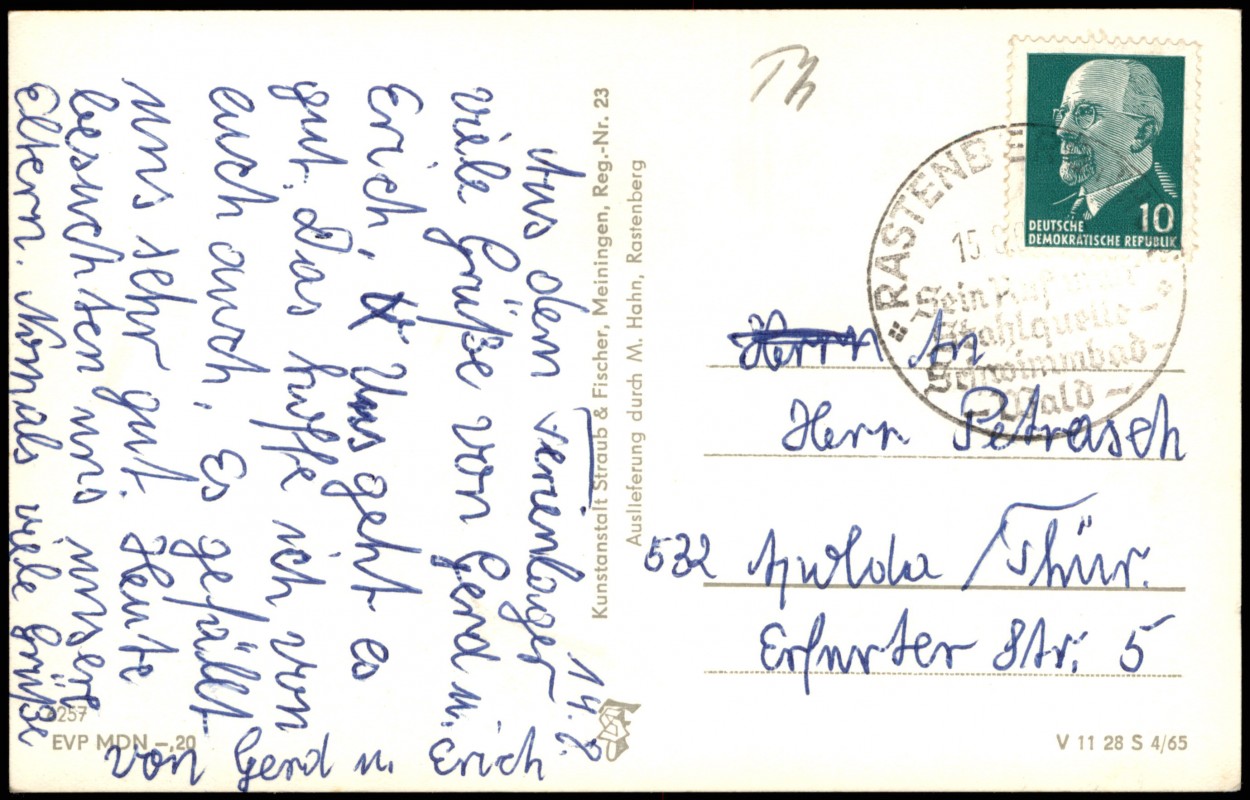 14.8.
Aus dem Ferienlager
viele Grüße von Gerd u.
Erich, Uns geht es
gut. Das hoffe ich von
euch auch, Es gefällt
uns sehr gut. Heute
besuchten uns unsere
Eltern. Nomals viele Grüße
von Gerd u. Erich
Kunstanstalt Straub & Fischer, Meiningen, Reg.-Nr. 23
Auslieferung durch M. Hahn, Rastenberg
6257
EVP MDN -,20
Th
10
DEUTSCHE
DEMOKRATISCHE REPUBLIK
RASTENBE
15.
Stahlquelle-
Schwimmbad-
Wald
Herrn An
Herr Petrasch
532 Apolda / Thür.
Erfurter Str. 5
V 11 28 S 4/65